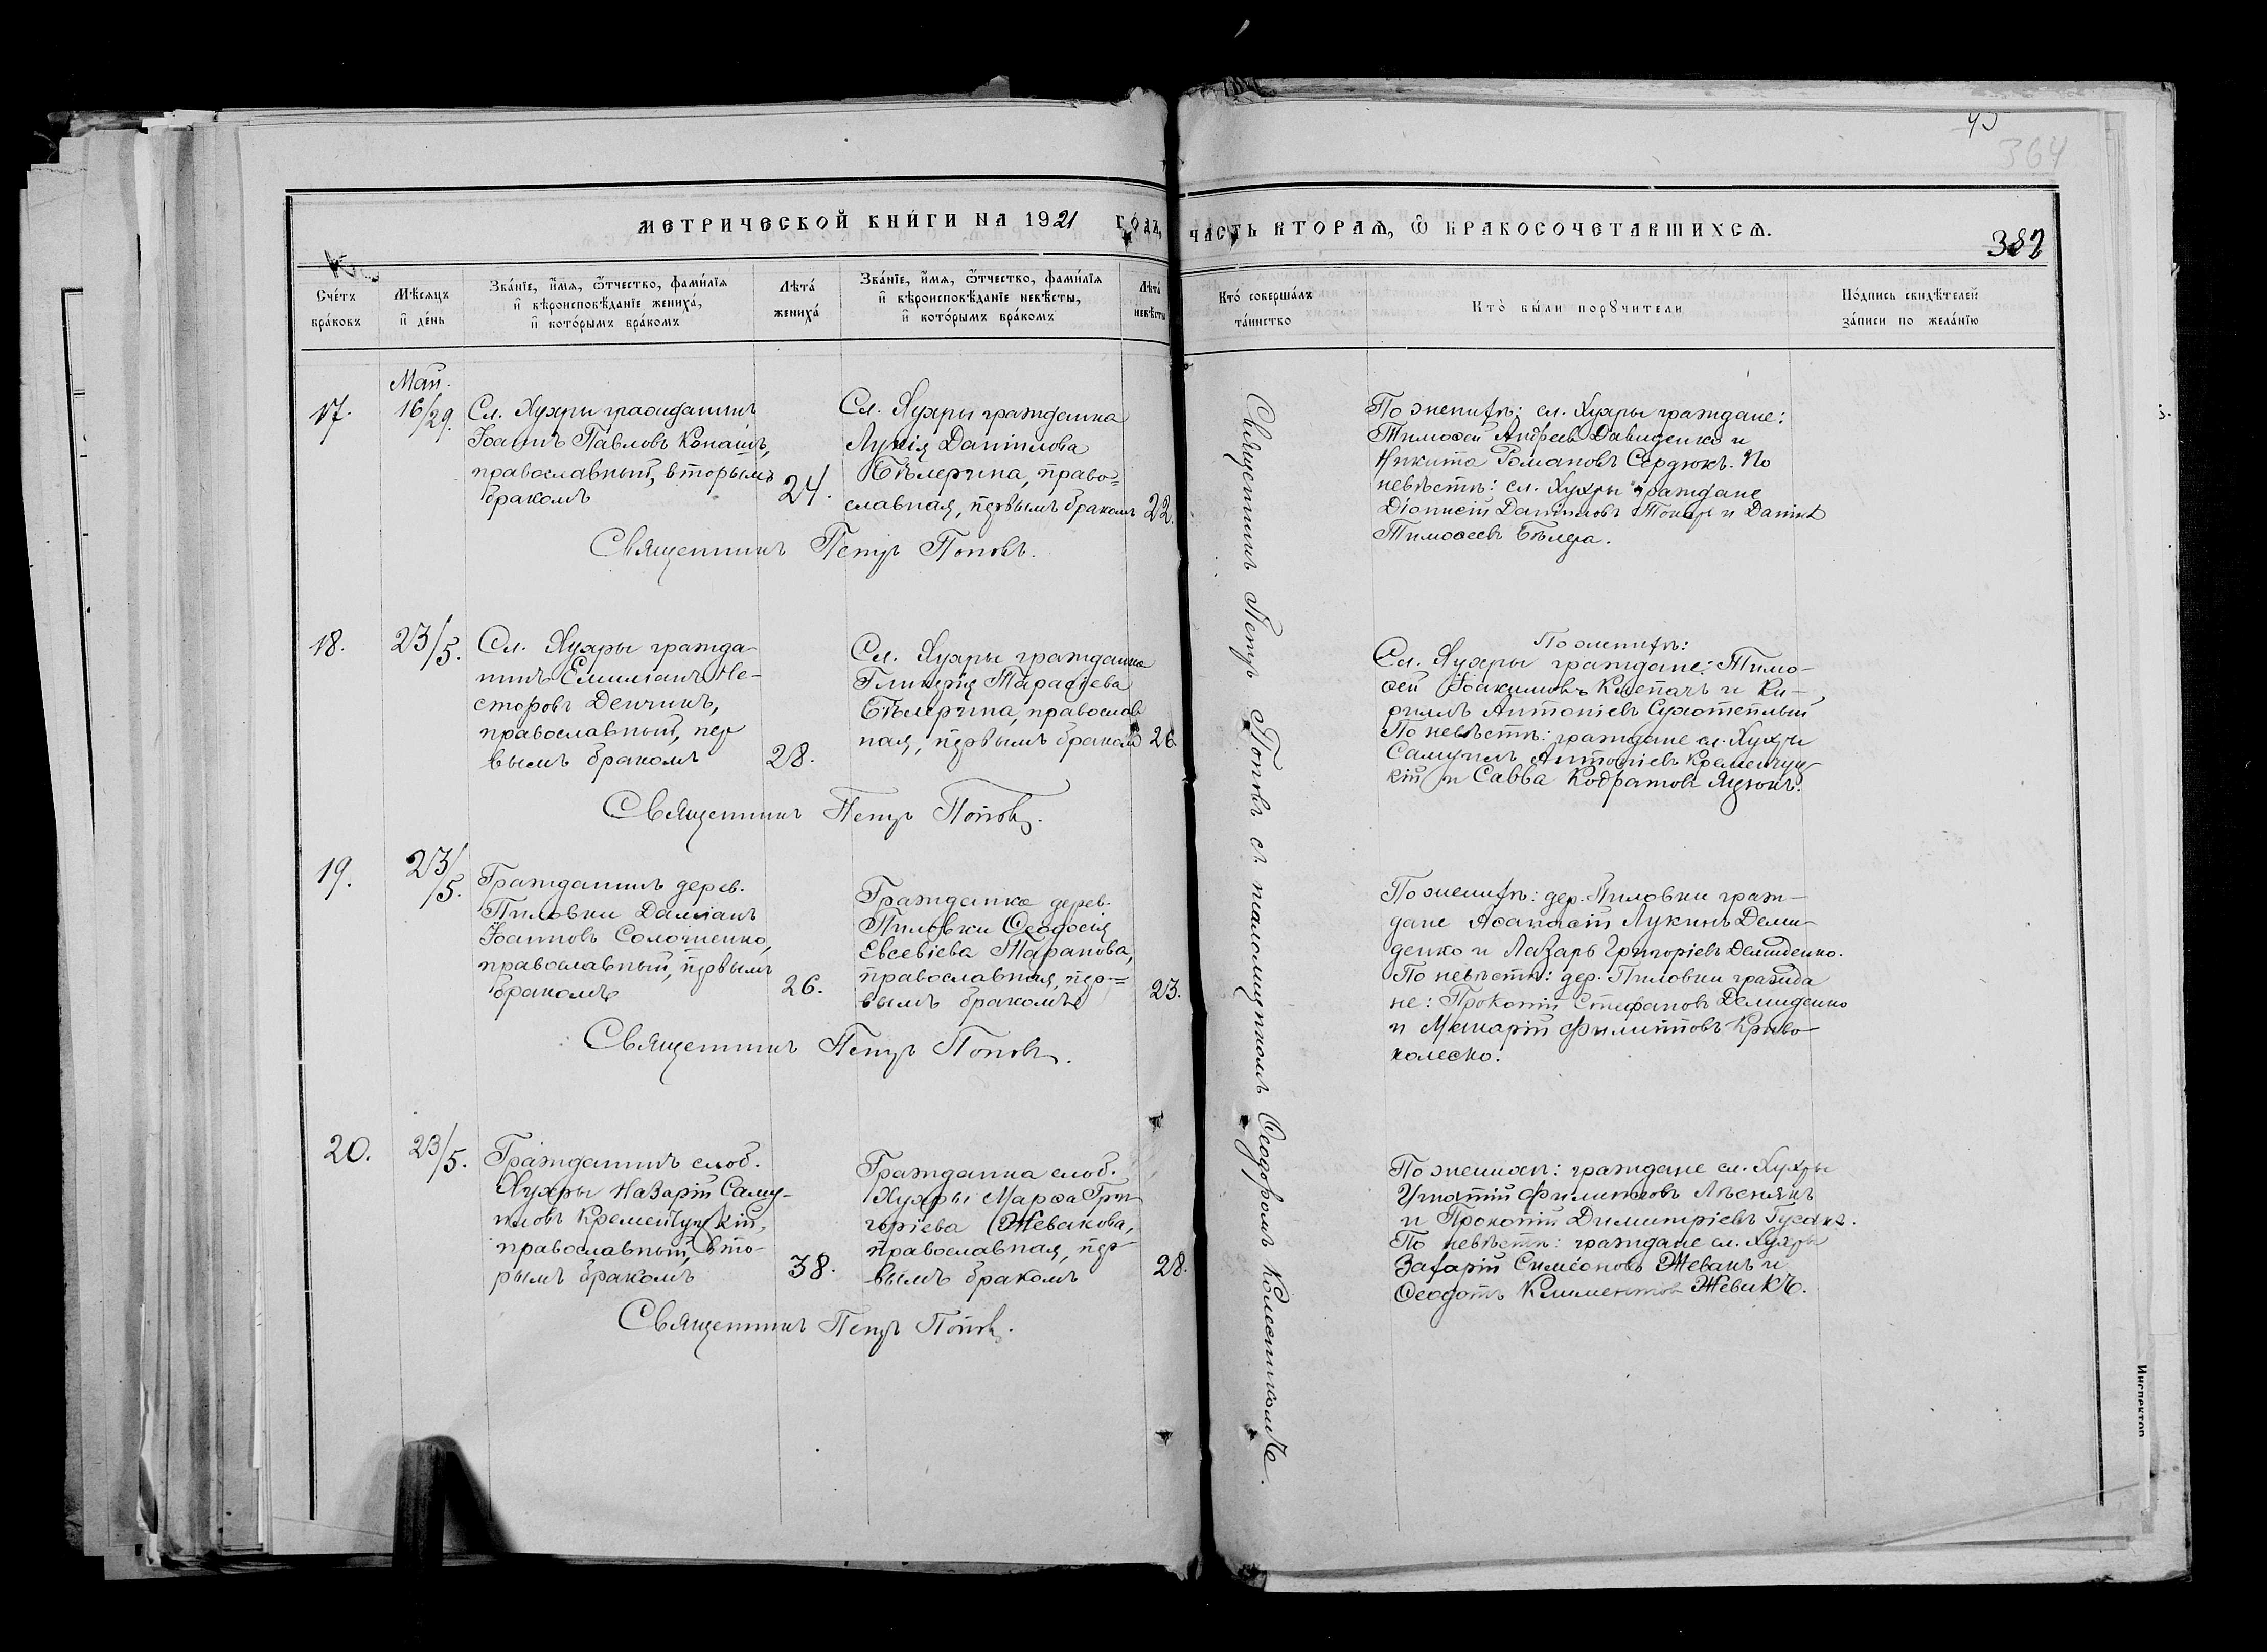 364
МЕТРИЧЕСКОЙ КНИГИ НА 1921 ГОДЪ,
ЧАСТЬ ВТОРАѦ, Ѿ БРАКОСОЧЕТАВШИХСѦ.
382
Счетъ браковъ
Мѣсяцъ и день
Званіе, имя, ѿчество, фамилія
и вѣроисповѣданіе жениха,
и которымъ бракомъ
Лѣта жениха
Званіе, имя, ѿчество, фамилія
и вѣроисповѣданіе невѣсты,
и которымъ бракомъ
Лѣта невѣсты
Кто совершалъ таинство
Кто были порꙋчители
Подпись свидѣтелей
записи по желанію
17.
Май.
16/29.
Сл. Хухры гражданинъ
Іоаннъ Павловъ
православный, вторымъ
бракомъ
24.
Сл. Хухры гражданка
Лукія Даніилова
Бѣлерина, право=
славная, первымъ бракомъ
22.
Священникъ Петръ Поповъ.
По женихѣ: сл. Хухры граждане:
Тимоѳей Андреевъ Давиденко и
Никита Романовъ Сердюкъ. По
невѣстѣ: сл. Хухры граждане
Діонисій Даниловъ Токарь и Даніилъ
Тимоѳеевъ Бѣлера.
18.
23/5.
Сл. Хухры гражда-
нинъ Емиліанъ Не-
сторовъ Денчикъ,
православный, пер
вымъ бракомъ
28.
Сл. Хухры гражданка
Гликерія Тарасіева
Бѣлерина, православ
ная, первымъ бракомъ
26
Священникъ Петръ Поповъ.
По женихѣ:
Сл. Хухры граждане: Тимо-
ѳей Іоакимовъ Клепачъ и Ки-
риллъ Антоніевъ Сухотеплый
По невѣстѣ: граждане сл. Хухры
Самуилъ Антоніевъ Кременчуц-
кій и Савва Кодратовъ
19.
23/5.
Гражданинъ дерев.
Пиловки Даміанъ
Іоанновъ Солошенко,
православный, первымъ
бракомъ
26.
Гражданка дерев.
Пиловки Ѳеодосія
Евсевіева Таранова,
православная, пер=
вымъ бракомъ
23.
Священникъ Петръ Поповъ.
По женихѣ: дер. Пиловки граж-
дане Аѳанасій Лукинъ Деми-
денко и Лазарь Григоріевъ Демиденко.
По невѣстѣ: дер. Пиловки гражда
не: Прокопій Стефановъ Демиденко
и Макарій Филипповъ Криво-
колеско.
20.
23/5.
Гражданинъ слоб.
Хухры Назарій Саму-
иловъ Кременчуцкій,
православный, вто-
рымъ бракомъ
38.
Гражданка слоб.
Хухры Марѳа Гри
горіева Жевакова,
православная, пер-
вымъ бракомъ
28.
Священникъ Петръ Поповъ.
По женихѣ: граждане сл. Хухры
Игнатій Филипповъ
и Прокопій Димитріевъ Гусакъ.
По невѣстѣ: граждане сл. Хухры
Захарій Симеоновъ Жевакъ и
Ѳеодотъ Климентовъ Жевакъ.
Священникъ Петръ Поповъ съ псаломщикомъ Ѳеодоромъ Колесниковымъ.
Инспектор